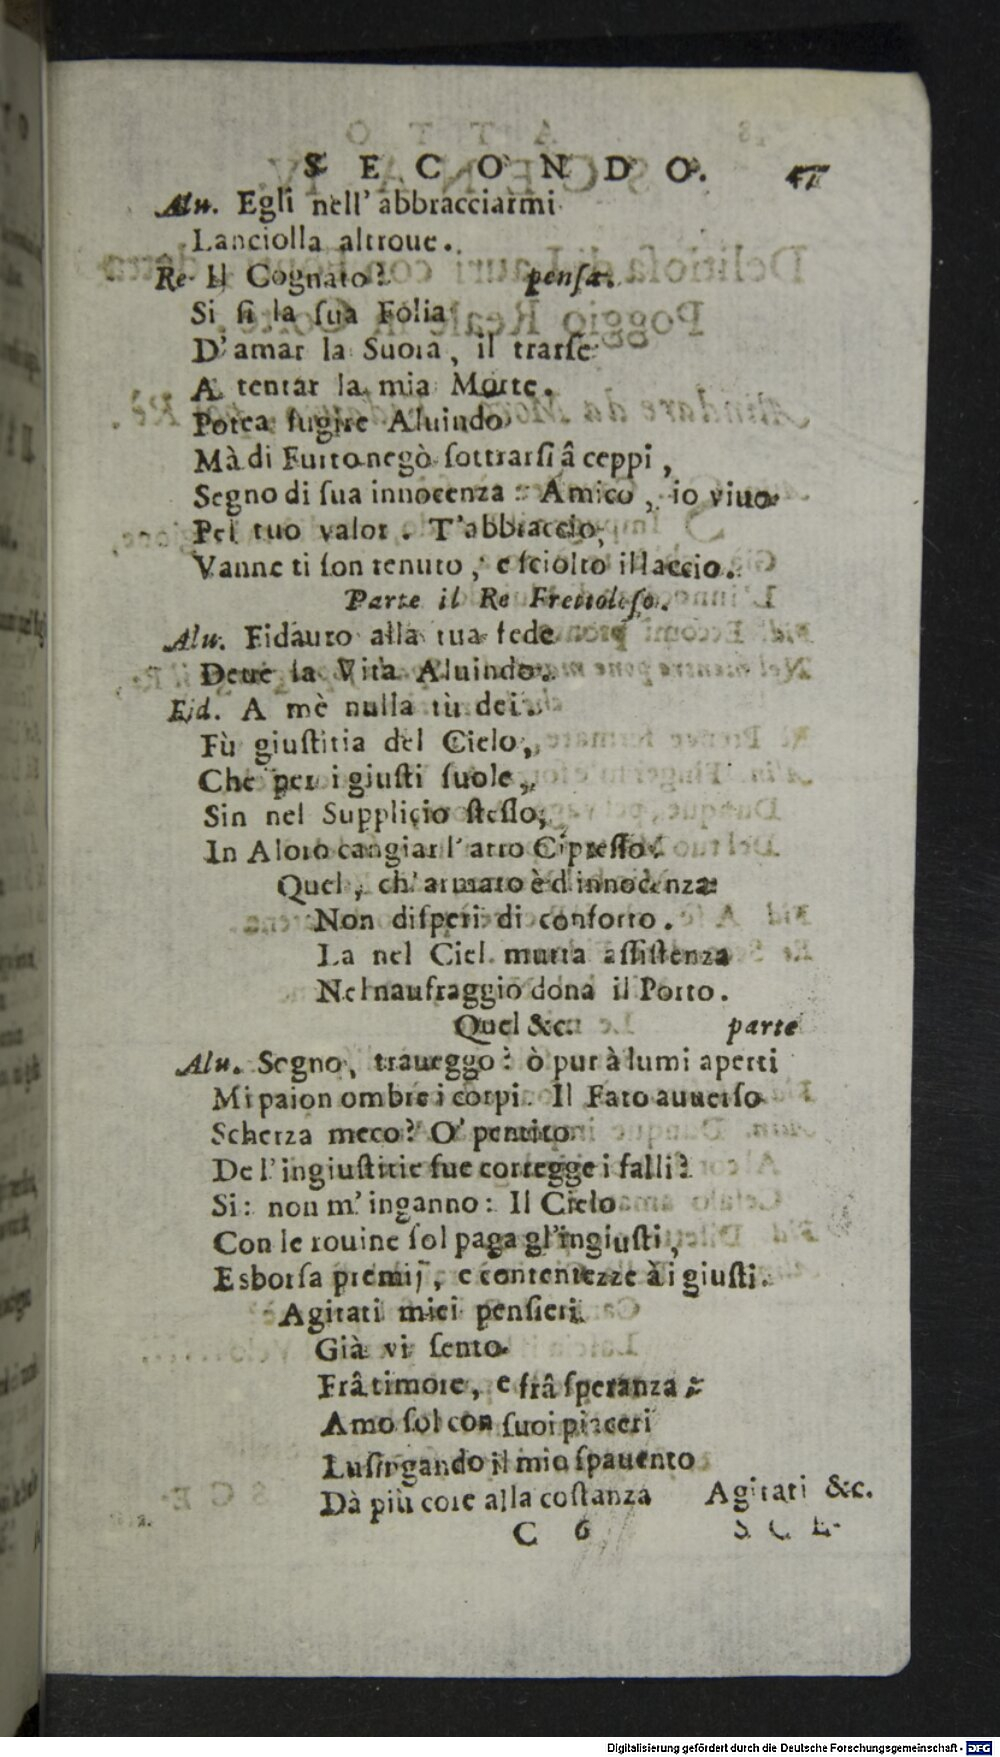 SECONDO. 47
Alu. Egli nell' abbracciarmi
Lanciolla altroue.
Re. Il Cognato? pensa.
Si si la sua Folia
D'amar la Suora, il trarse
A tentar la mia Morte.
Potea fugire Aluindo
Mà di Furto negò sottrarsi â ceppi,
Segno di sua innocenza: Amico, io viuo
Pel tuo valor. T'abbraccio,
Vanne ti son tenuto, e sciolto il laccio.
Parte il Re Frettoloso.
Alu. Fidauro alla tua fede
Deue la Vita Aluindo.
Fid. A mè nulla tù dei.
Fù giustitia del Cielo,
Che per i giusti suole,
Sin nel Supplicio stesso,
In Aloro cangiar l'atro Cipresso.
Quel, ch' armato è d'innocenza
Non disperi di conforto.
La nel Ciel mutta assistenza
Nel naufraggio dona il Porto.
Quel &c. parte
Alu. Sogno, traueggo? ò pur à lumi aperti
Mi paion ombre i corpi. Il Fato auuerso
Scherza meco? O' pentito
De l'ingiustitie sue corregge i falli?
Si: non m'inganno: Il Cielo
Con le rouine sol paga gl'ingiusti,
Esborsa premij, e contentezze à i giusti.
Agitati miei pensieri
Già vi sento
Frâ timore, e frâ speranza;
Amo sol con suoi piaceri
Lusingando il mio spauento
Dà più core alla costanza Agitati &c.
C 6 SCE-
Digitalisierung gefördert durch die Deutsche Forschungsgemeinschaft - DFG